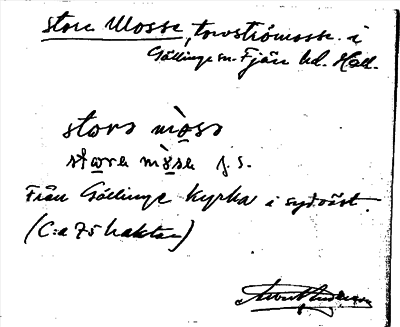 Store Mosse, torvströmosse i
Gällinge sn. Fjäre hd. Hall.
storə mo̤sə
starə mo̤sə j.s.
Från Gällinge Kyrka i sydväst.
(C:a 75 hektar)